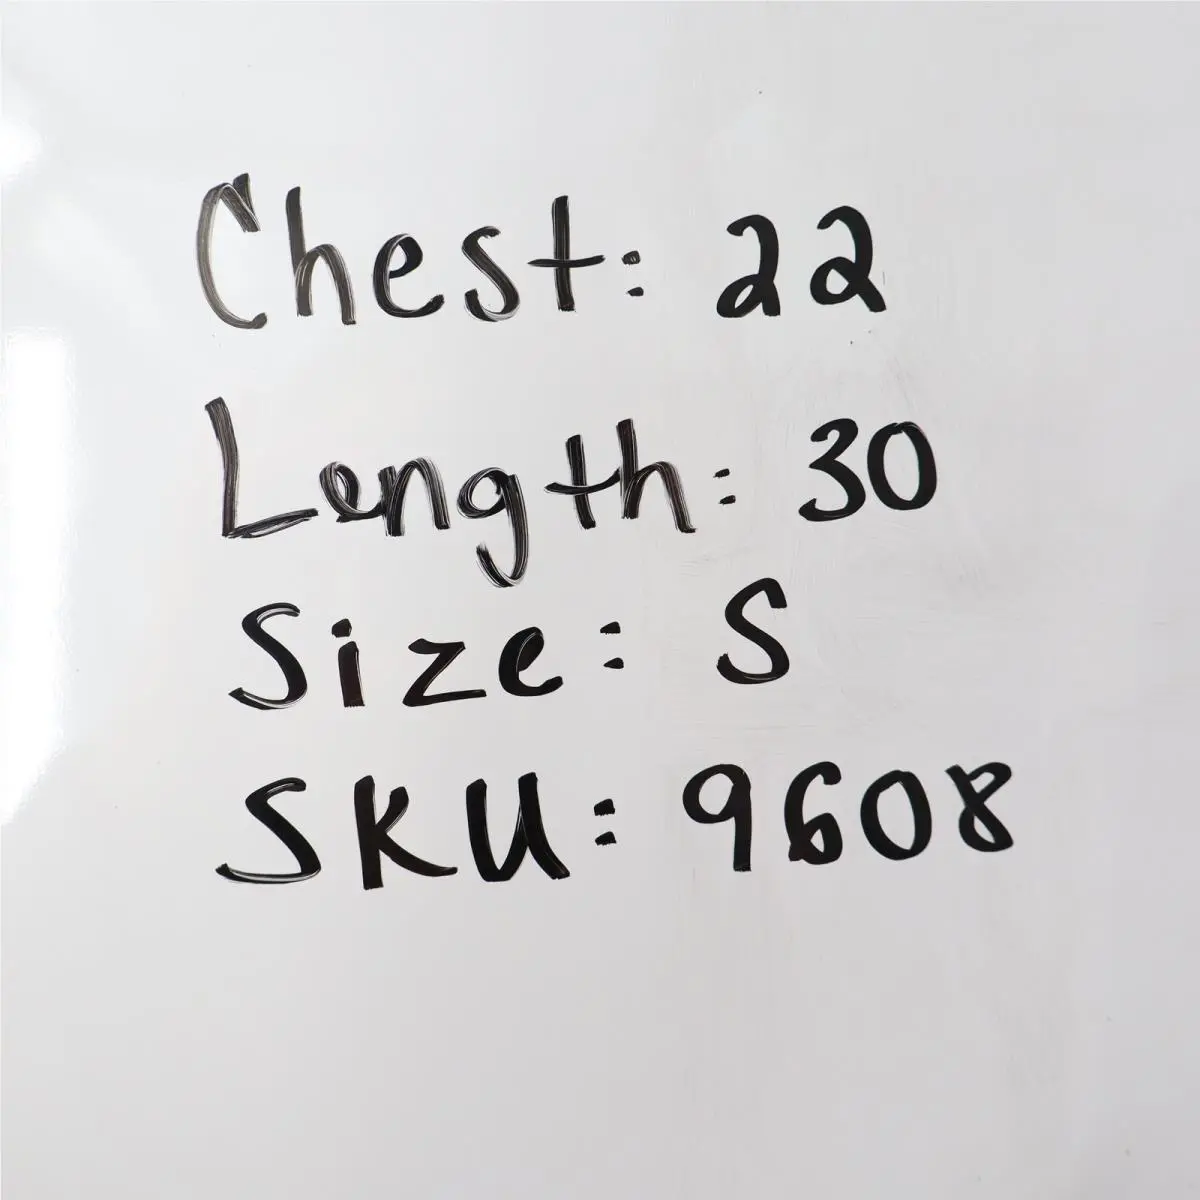 Chest: 22
Length: 30
Size: S
SKU: 9608